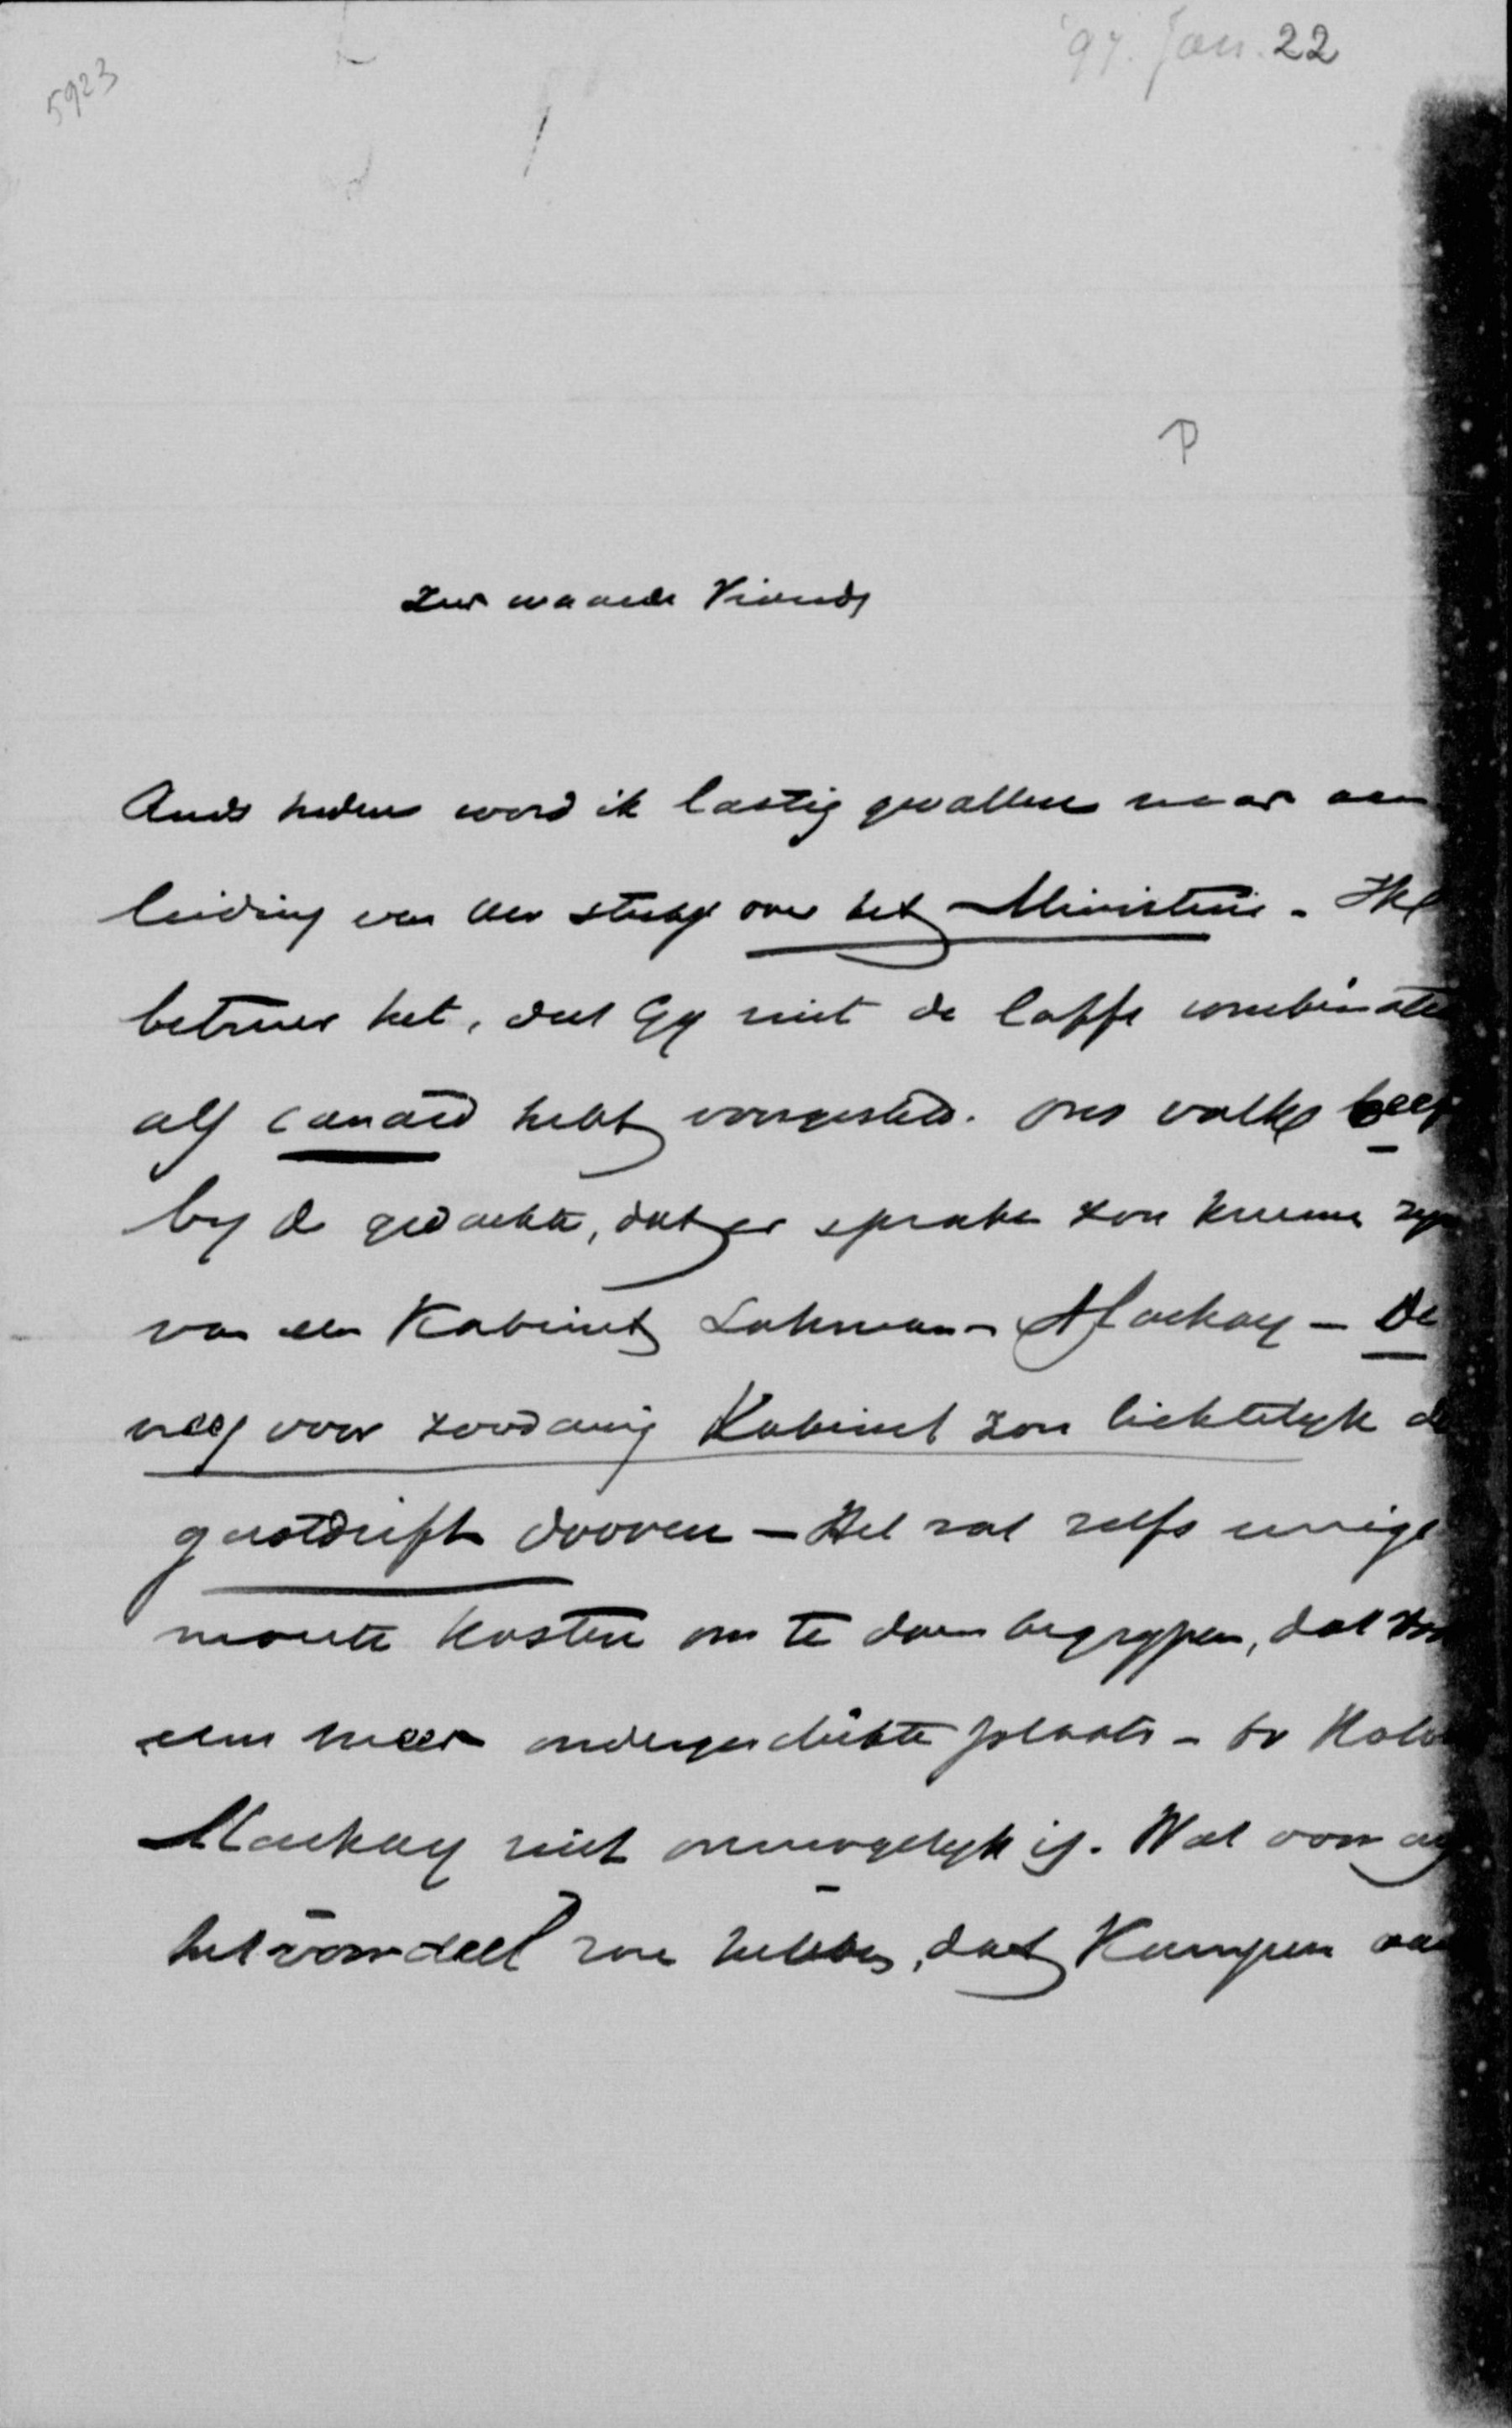 5923
'97. Jan. 22
P
Zeer waarde Vriend
heden word ik lastig gevallen naar aan
leiding van Uw stukje over het Ministerie - Ik
betreur het, dat Gy niet de laffe combinatie
als canard hebt voorgesteld. Ons volk beef
by de gedachte, dat er sprake zou kunnen zyn
van een Kabinet Lohman - Mackay - De
vrees voor zoodanig Kabinet zou lichtelyk de
geestdrift dooven - Het zal zelfs eenige
moeite kosten om te doen begrypen, dat voor
een meer ondergeschikte plaats -
Mackay niet onmogelyk is. Wat voor
het voordeel zou hebben, dat Kampen